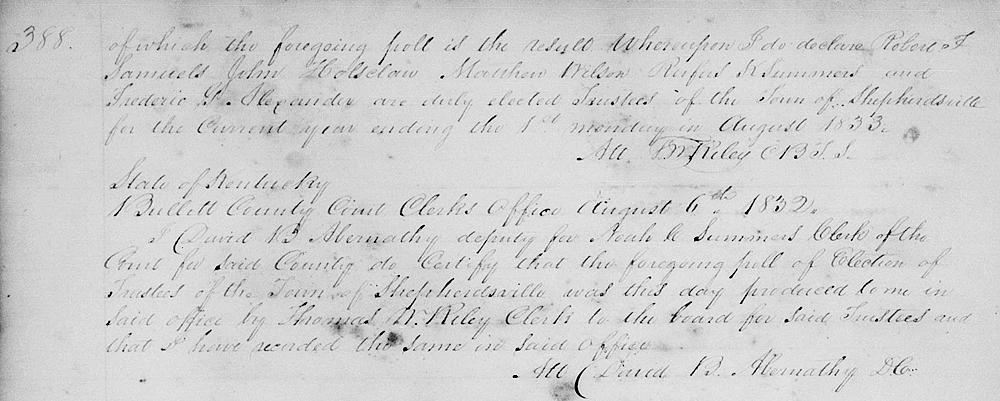 388. of which the foregoing poll is the result Whereupon I do declare Robert F
Samuels John Holsclaw Matthew Wilson Rufus K Summers and
Frederic G. Alexander are duly elected Trustees of the Town of Shepherdsville
for the Current year ending the 1st monday in August 1833.
Att W Riley C B T. S.
State of Kentucky
Bullitt County Court Clerks Office August 6th 1832.
I David B Abernathy deputy for Noah C Summers Clerk of the
Court for said County do Certify that the foregoing poll of Election of
Trustees of the Town of Shepherdsville was this day produced to me in
said office by Thomas W. Riley Clerk to the board for said Trustees and
that I have recorded the same in said Office
Att David B. Abernathy D.C.